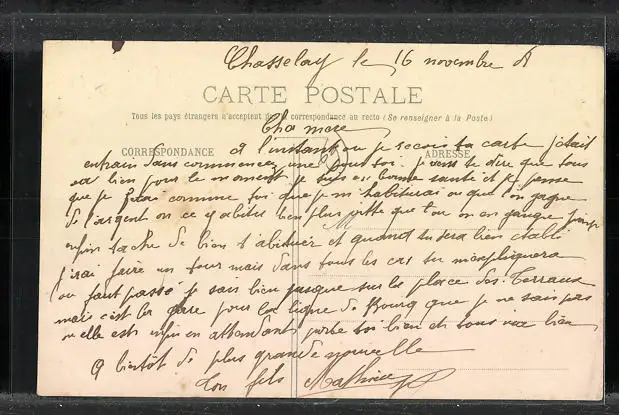 Chasselay le 16 novembre 8
CARTE POSTALE
Tous les pays étrangers n'acceptent pas la correspondance au recto (Se renseigner à la Poste)
Cha mere
CORRESPONDANCE
ADRESSE
A l'instant ou je recois ta carte j'était
entrain dans commencer une pour toi. je vient te dire que tous
va bien pour le moment je suis en bonne santé et je pense
que je ferai comme toi que je m'habiturai ou que l'on gagne
de l'argent on ce y abitue bien plus vitte que l'ou on en gangne
enfin tache de bien t'abituer et quand tu sera bien établi
j'irai faire un tour mais dans tous les cas tu m'expliquera
ou faut passé je sais bien jusque sur les place des Terraux
mais c'est la gare pour la ligne de Bourg que je ne sais pas
ou elle est enfin en attendant porte toi bien et tous va bien
A bientôt de plus grande nouvelle
Ton fils